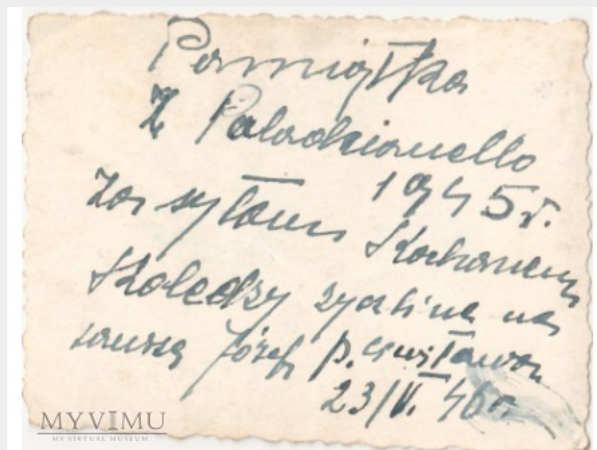 Pamiątka
Z Paladkianello
1945r.
Zasyłam Kochanemu
Koledzy życzliwe na
zawsze Józef P.
23/V. 46r.
MYVIMU
MY VIRTUAL MUSEUM